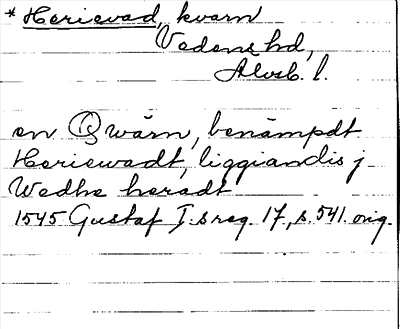 * Herievad, kvarn
Vedens hd,
Älvsb. l.
en Qwärn, benämpdt
Heriewadt, liggiandis j
Wedhe heradt
1545 Gustaf I:s reg. 17, s. 541. orig.